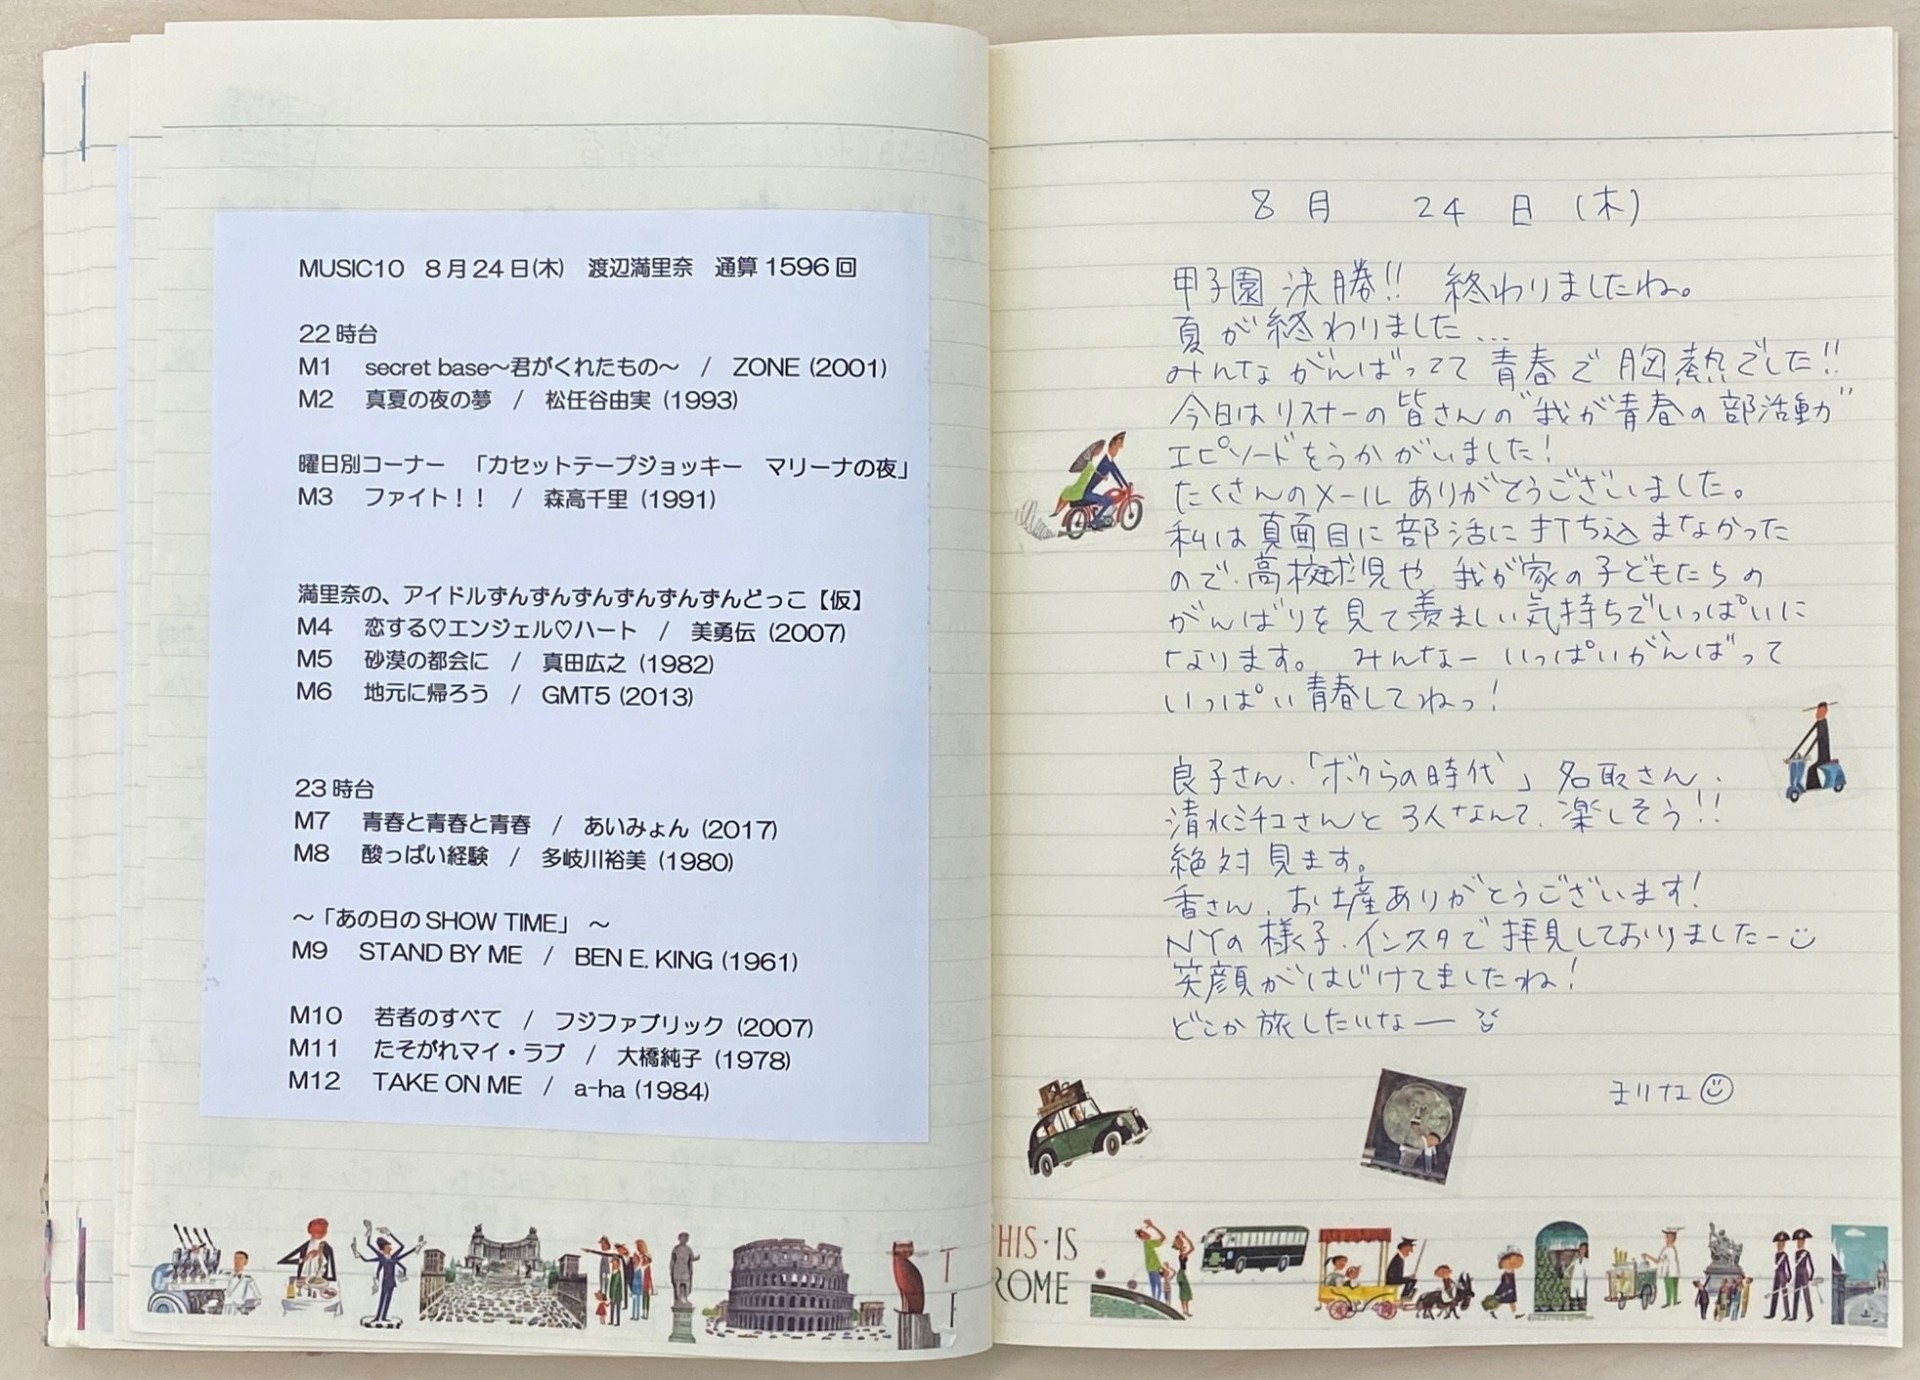 MUSIC10 8月24日(木) 渡辺満里奈 通算1596回
22時台
M1 secret base～君がくれたもの～ / ZONE (2001)
M2 真夏の夜の夢 / 松任谷由実 (1993)
曜日別コーナー 「カセットテープジョッキー マリーナの夜」
M3 ファイト！！ / 森高千里 (1991)
満里奈の、アイドルずんずんずんずんずんずんどっこ【仮】
M4 恋する♡エンジェル♡ハート / 美勇伝 (2007)
M5 砂漠の都会に / 真田広之 (1982)
M6 地元に帰ろう / GMT5 (2013)
23時台
M7 青春と青春と青春 / あいみょん (2017)
M8 酸っぱい経験 / 多岐川裕美 (1980)
～「あの日のSHOW TIME」～
M9 STAND BY ME / BEN E. KING (1961)
M10 若者のすべて / フジファブリック (2007)
M11 たそがれマイ・ラブ / 大橋純子 (1978)
M12 TAKE ON ME / a-ha (1984)
8月 24日(木)
甲子園決勝!! 終わりましたね。
夏が終わりました…
みんながんばってて青春で胸熱でした!!
今日はリスナーの皆さんの"我が青春の部活動"
エピソードをうかがいました!
たくさんのメールありがとうございました。
私は真面目に部活に打ち込まなかった
ので、高校球児や、我が家の子どもたちの
がんばりを見て羨ましい気持ちでいっぱいに
なります。 みんなー いっぱいがんばって
いっぱい青春してねっ!
良子さん、「ボクらの時代」名取さん、
清水ミチコさんと3人なんて、楽しそう!!
絶対見ます。
香さん、お土産ありがとうございます!
NYの様子、インスタで拝見しておりましたー
笑顔がはじけてましたね!
どこか旅したいなー
まりな
THIS·IS
ROME